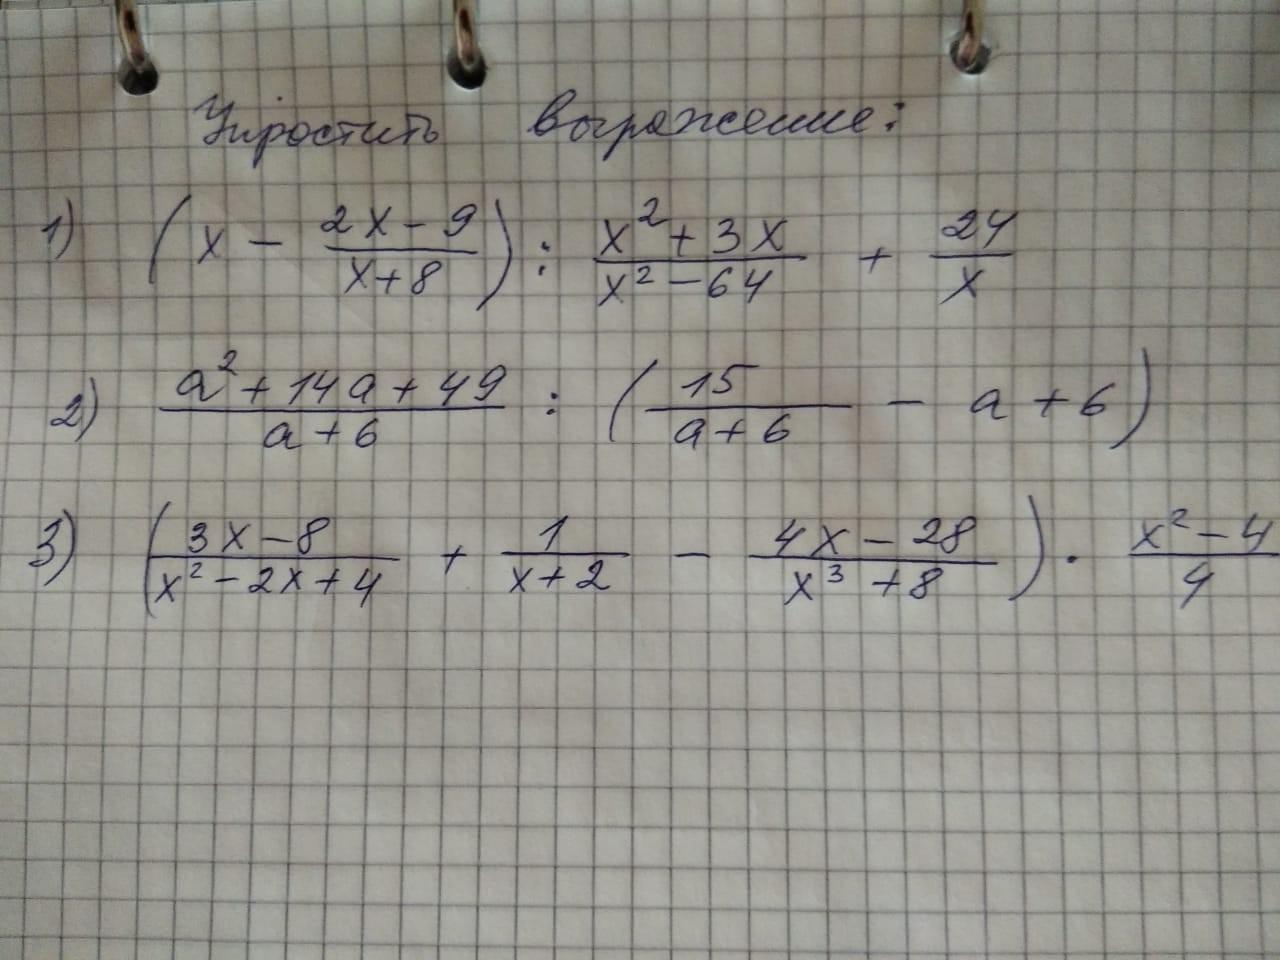 Упростить выражение:
1) (x - (2x - 9)/(x + 8)) : (x² + 3x)/(x² - 64) + 24/x
2) (a² + 14a + 49)/(a + 6) : (15/(a + 6) - a + 6)
3) ((3x - 8)/(x² - 2x + 4) + 1/(x + 2) - (4x - 28)/(x³ + 8)) · (x² - 4)/4